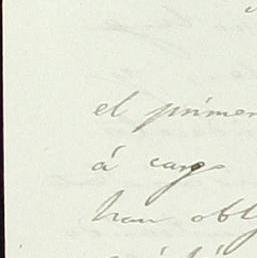 el primer
á cargo
han obl